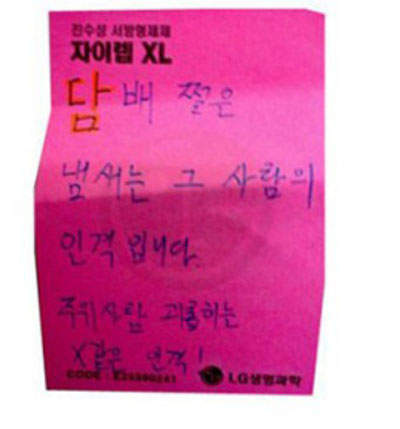 진수상 서방형제제
자이렙 XL
담배 쩔은
냄새는 그 사람의
인격 입니다.
주위사람 괴롭히는
X같은 인격!
CODE : E25590241
LG생명과학